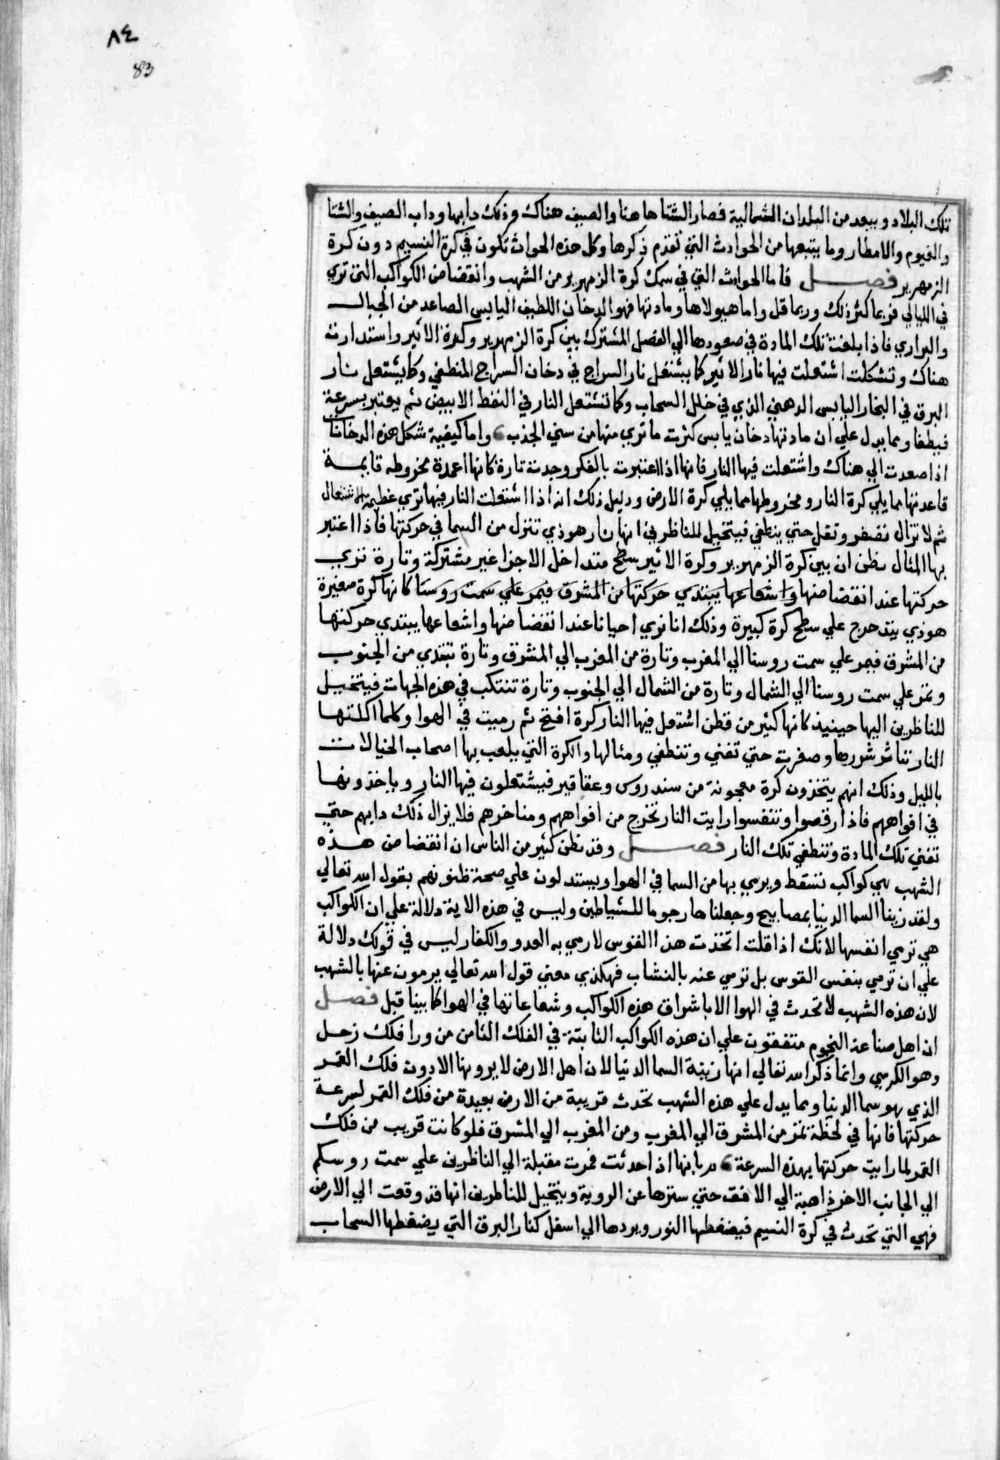 ٨٤
83
تلك البلاد ويبعد من البلدان الشمالية فصار الشتا هاهنا والصيف هناك وذلك دابهما وداب الصيف والشتا
والغيوم والامطار وما يتبعها من الحوادث التي تقدم ذكرها وكل هذه الحوادث تكون في كرة النسيم دون كرة
الزمهرير فصل فاما الحوادث التي في سمك كرة الزمهرير من الشهب وانقضاض الكواكب التي تري
في الليالي فربما كثر ذلك وربما قل واما هيولاها ومادتها فهو الدخان اللطيف اليابس الصاعد من الجبال
والبراري فاذا بلغت تلك المادة في صعودها الي الفصل المشترك بين كرة الزمهرير وكرة الاثير واستدارت
هناك وتشكلت اشتعلت فيها نار الاثير كما يشتعل نار السراج في دخان السراج المنطفي وكما يشتعل نار
البرق في البخار اليابس الدهني الذي في خلل السحاب وكما تشتعل النار في النفط الابيض ثم يعتبر بسرعة
فيطفا ومما يدل علي ان مادتها دخان يابس كثرت ما تري منها من سني الجذب واما كيفية شكل هذه الدخانات
اذا صعدت الي هناك واشتعلت فيها النار فانها اذا اعتبرت بالفكر وجدت تارة كانها اعمدة مخروطه قايمة
قاعدتها مما يلي كرة النار ومخروطها مما يلي كرة الارض ودليل ذلك انه اذا اشتعلت النار فيها تري عظيمة الاشتعال
ثم لا تزال تصغر وتقل حتي ينطفي فيتخيل للناظرين انها نار هوذي تنزل من السما في حركتها فاذا اعتبر
بها المثال يظن ان بين كرة الزمهرير وكرة الاثير سطح متداخل الاجزا غير مشتركة وتارة تري
حركتها عند انقضاضها واشعاعها يبتدي حركتها من المشرق فيمر علي سمت روسنا كانها كرة صغيرة
هوذي يتدحرج علي سطح كرة كبيرة وذلك انا نري احيانا عند انقضاضها واشعاعها يبتدي حركتها
من المشرق فيمر علي سمت روسنا الي المغرب وتارة من المغرب الي المشرق وتارة تبتدي من الجنوب
وتمر علي سمت روسنا الي الشمال وتارة من الشمال الي الجنوب وتارة تتنكب في هذه الجهات فيتخيل
للناظرين اليها حينيذ كانها كثير من قطن اشتعل فيها النار كرة افتح ثم رميت في الهوا وكلما اكلتها
النار تناثر شررها وصغرت حتي تفني وتنطفي ومثالها والكرة التي يلعب بها اصحاب الخيالات
بالليل وذلك انهم يتخذون كرة معجونة من سندروس وعقاقير فيشتعلون فيها النار وياخذونها
في افواههم فاذا رقصوا وتنفسوا رايت النار تخرج من افواههم ومناخرهم فلا يزال ذلك دابهم حتي
تفني تلك المادة وتنطفي تلك النار فصل وقد يظن كثير من الناس ان انقضاض هذه
الشهب هي كواكب تسقط ويرمي بها من السما في الهوا ويستدلون علي صحة ظنونهم بقول الله تعالي
ولقد زينا السما الدنيا بمصابيح وجعلناها رجوما للشياطين وليس في هذه الاية دلالة علي ان الكواكب
هي ترمي انفسها لانك اذا قلت اتخذت هذا القوس لارمي به العدو والكفار ليس في قولك دلالة
علي ان ترمي بنفس القوس بل ترمي عنه بالنشاب فهكذي معني قول الله تعالي يرمون عنها بالشهب
لان هذه الشهب لا تحدث في الهوا الا باشراق هذه الكواكب وشعاعاتها في الهوا كما بينا قبل فصل
ان اهل صناعة النجوم متفقون علي ان هذه الكواكب الثابتة في الفلك الثامن من ورا فلك زحل
وهو الكرسي وانما ذكر الله تعالي انها زينة السما الدنيا لان اهل الارض لا يرونها الا دون فلك القمر
الذي هو سما الدنيا ومما يدل علي هذه الشهب تحدث قريبة من الارض بعيدة من فلك القمر لسرعة
حركتها فانها في لحظة تمر من المشرق الي المغرب ومن المغرب الي المشرق فلو كانت قريب من فلك
القمر لما رايت حركتها بهذه السرعة مر بانها اذا حدثت فمرت مقبلة الي الناظرين علي سمت روسكم
الي الجانب الاخر ذاهبة الي الافق حتي سترها عن الروية ويتخيل للناظرين انها قد وقعت الي الارض
فهي التي تحدث في كرة النسيم فيضغطها النور ويردها الي اسفل كنار البرق التي يضغطها السحاب